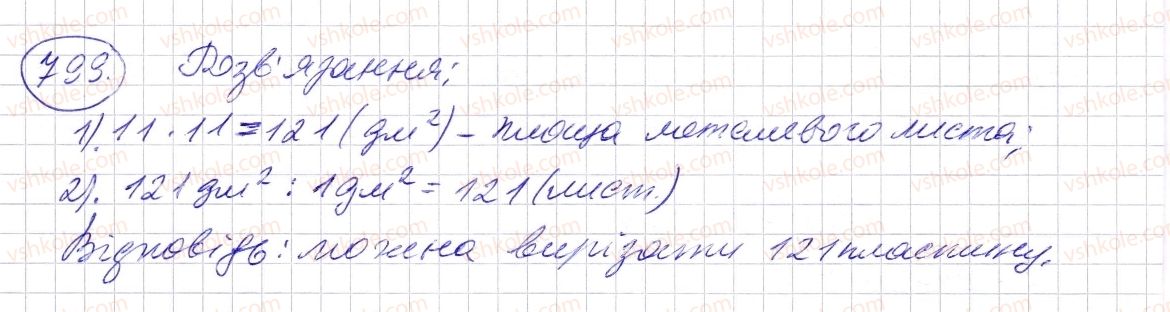 799. Розв'язання:
1). 11 · 11 = 121 (дм²) – площа металевого листа;
2). 121 дм² : 1 дм² = 121 (лист.)
Відповідь: можна вирізати 121 пластину.